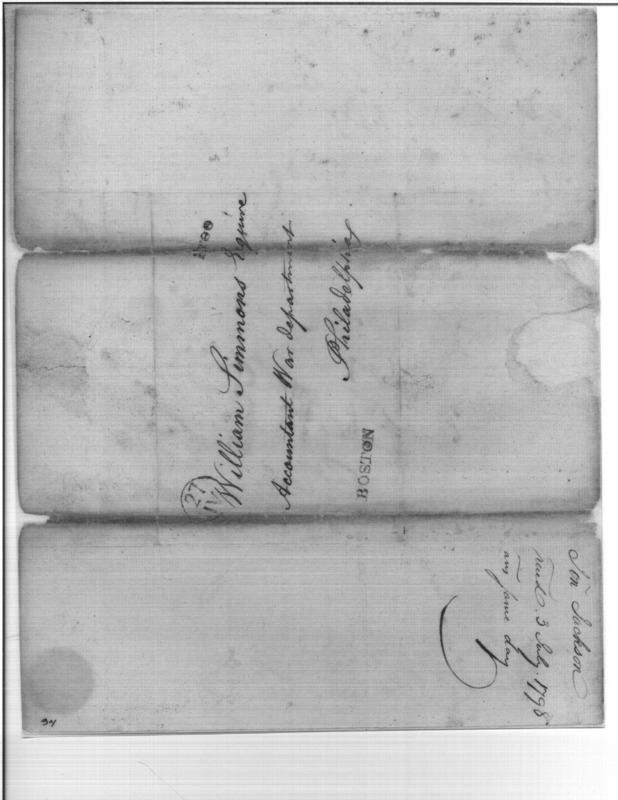 FREE
William Simmons Esquire
Accountant War department
Philadelphia
27
IV
BOSTON
Jon Jackson
recd. 3 July. 1798
ans same day
34